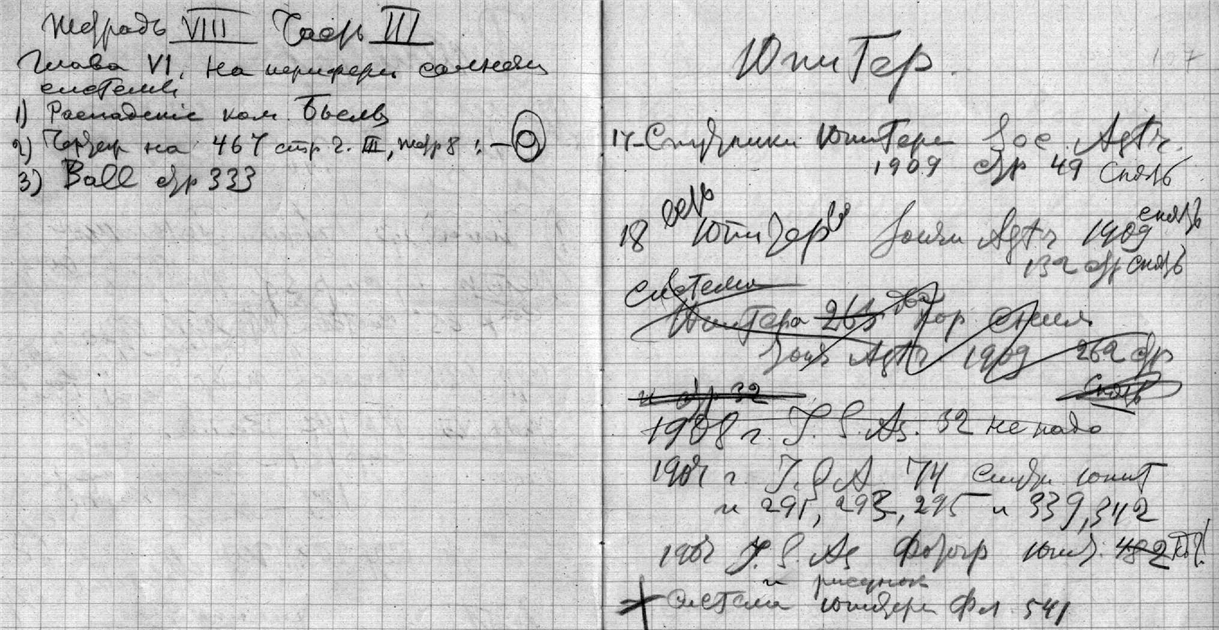 Тетрадь VIII Часть III
Глава VI. На периферии солнечн
системы
1) Распадение ком. Бьелы
2) на 467 стр ч. III, тетр 8 :—
3) Ball стр 333
Юпитер.
17-Спутники Юпитера Soc. Astr.
1909 стр 49 Снять
18 Юпитер Journ Astr 1909 снять
132 стр снять
системы
Юпитера 265 два пор снимк
Journ Astr 1909 262 стр
и стр 32 снять
1908 г. J. S. As. 32 не надо
1907 г J. S A 74 спутн юпит
и 291, 293, 295 и 339, 342
1907 J. S. As Фотогр юпит. 482
и рисунок
Система юпитера Фл 541